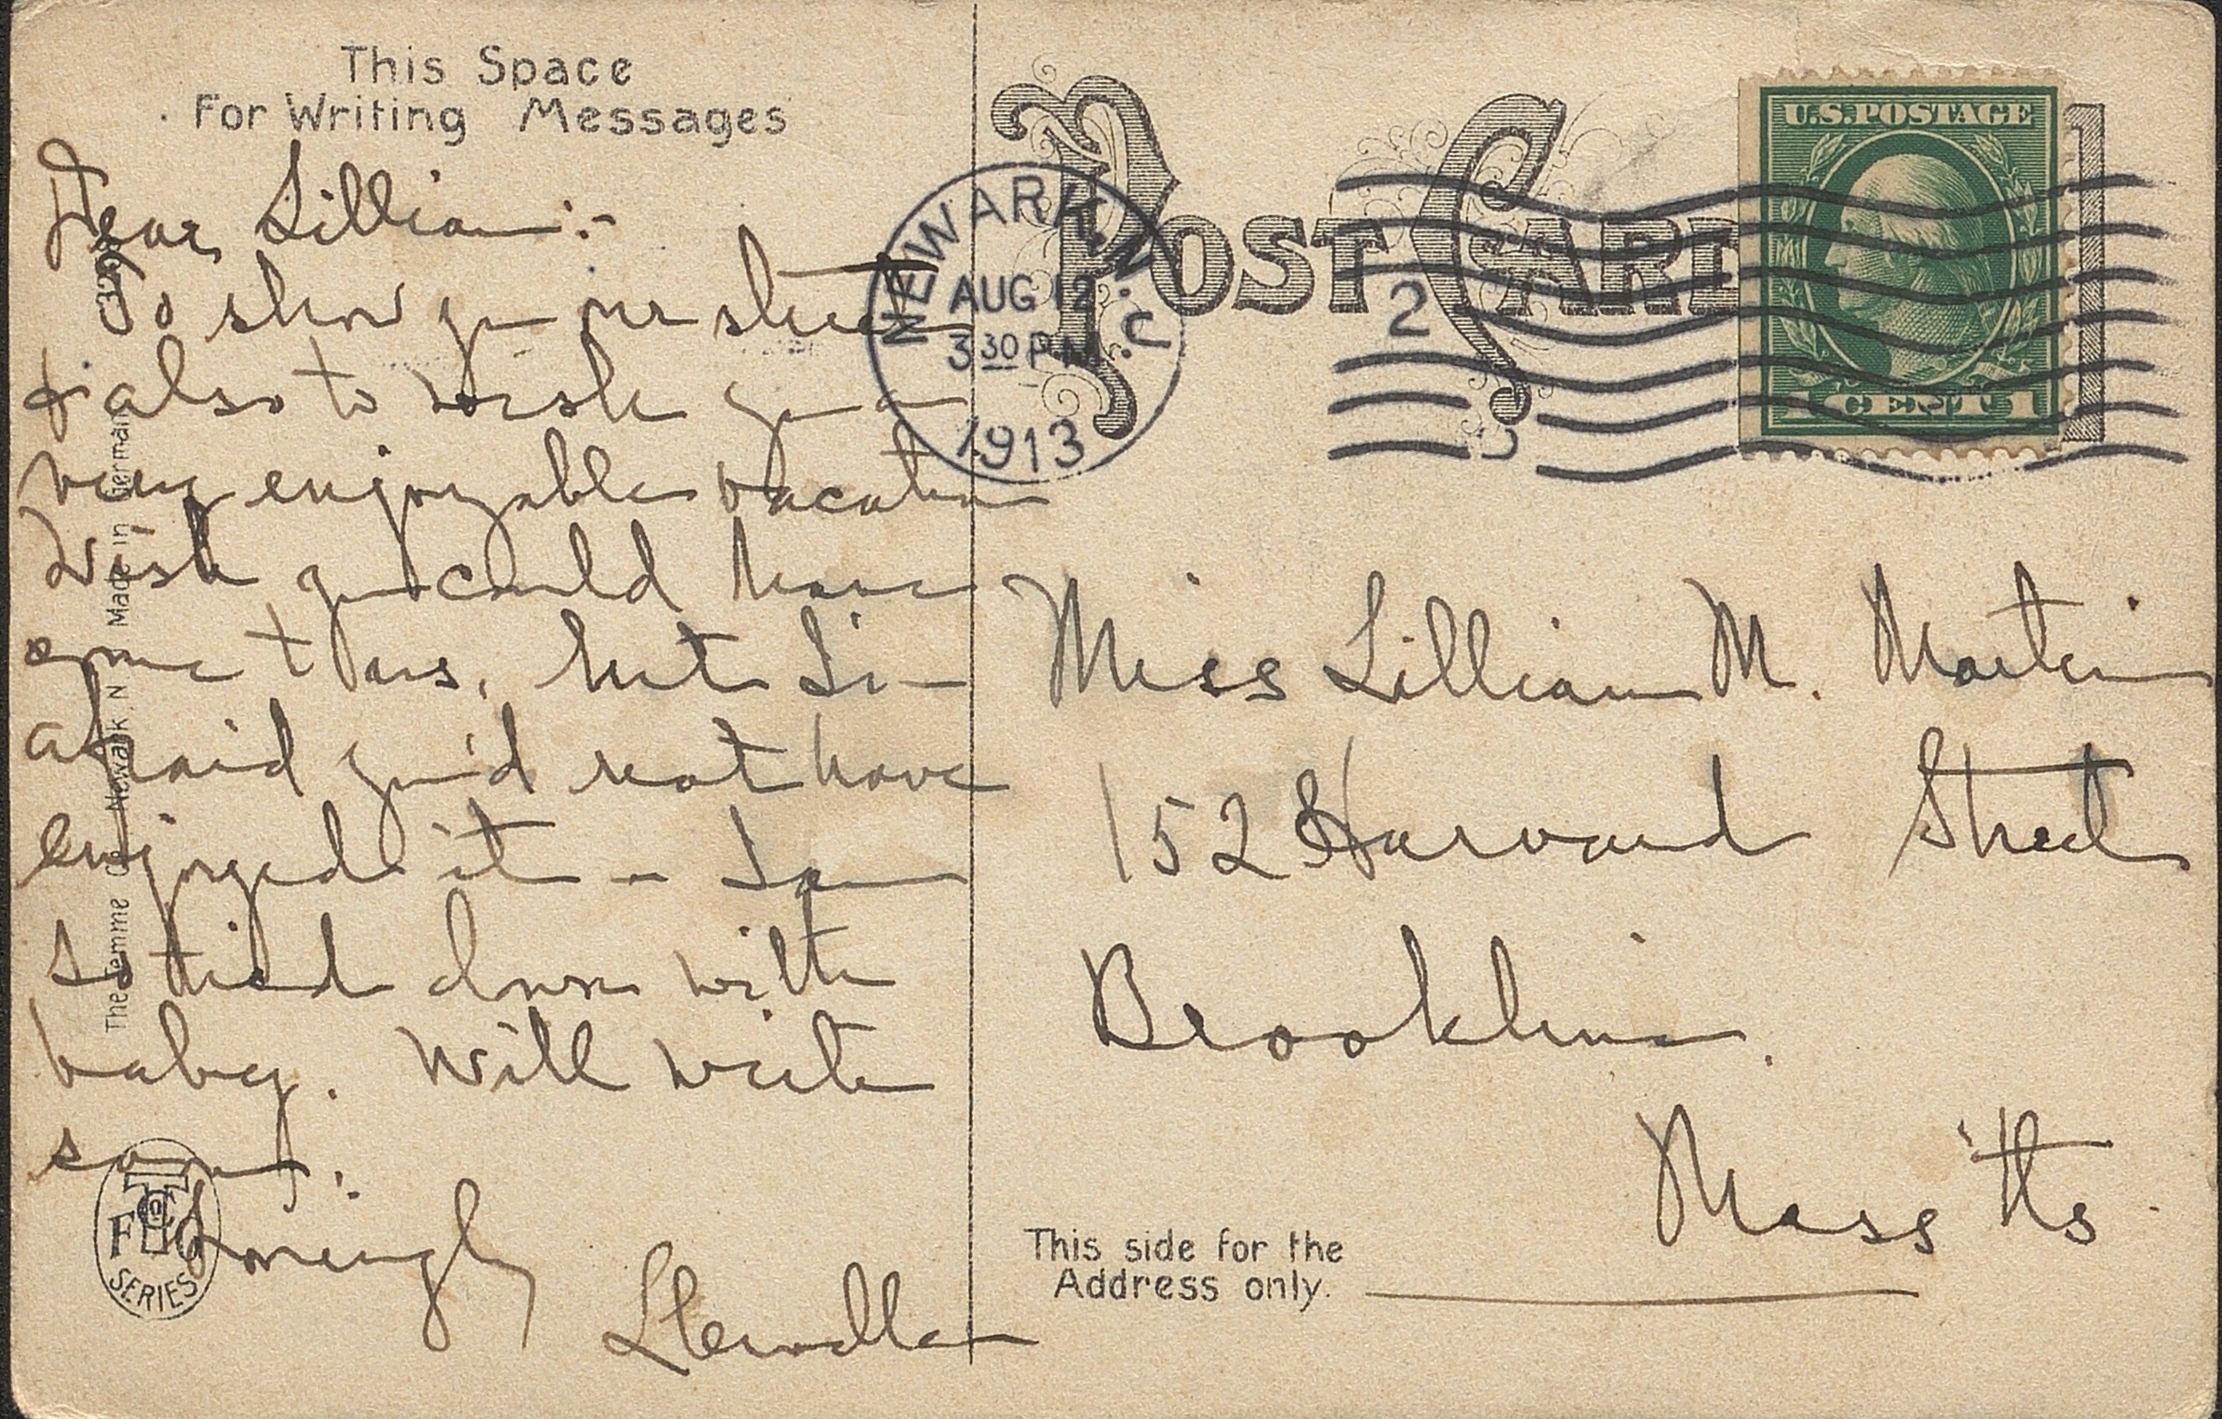 This Space
For Writing Messages
Dear Lillian:-
To show you our street
& also to wish you a
very enjoyable vacation
Wish you could have
come t us, but I'm
afraid you'd not have
enjoyed it - I am
so tied down with
baby. Will write
soon.
Lovingly
Llewella
The Temme Co. Newark, N Made in Germany
TFC Co
SERIES
POST CARD
NEWARK, N.J.
AUG 12
3 30 PM
1913
2
U.S. POSTAGE
1 CENT 1
Miss Lillian M. Martin
152 Harvard Street
Brookline.
Mass'tts
This side for the
Address only.